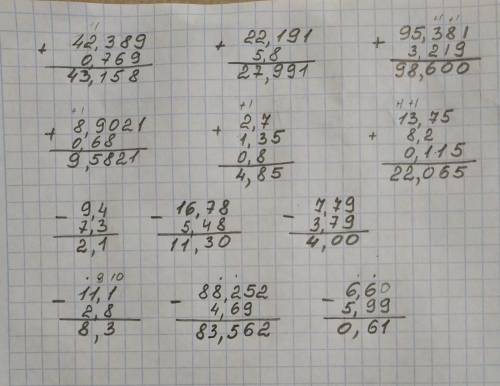 +1
+ 42,389
0,769
43,158
+ 22,191
5,8
27,991
+1 +1
+ 95,381
3,219
98,600
+1
+ 8,9021
0,68
9,5821
+1
+ 2,7
1,35
0,8
4,85
+1 +1
+ 13,75
8,2
0,115
22,065
- 9,4
7,3
2,1
- 16,78
5,48
11,30
- 7,79
3,79
4,00
. 9 10
- 11,1
2,8
8,3
. .
- 88,252
4,69
83,562
. .
- 6,60
5,99
0,61